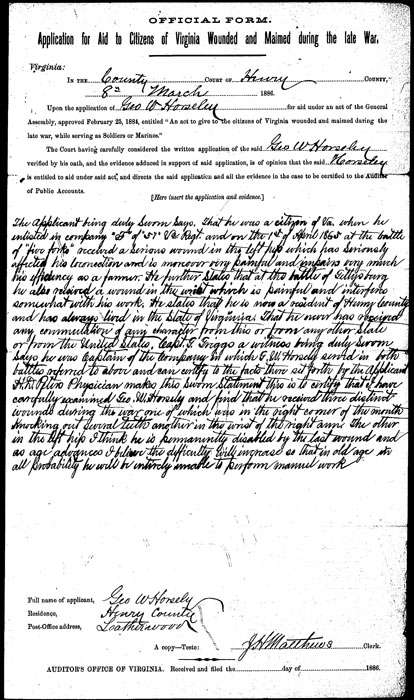 OFFICIAL FORM.
Application for Aid to Citizens of Virginia Wounded and Maimed during the late War.
Virginia:
IN THE County COURT OF Henry COUNTY,
8th March 1886.
Upon the application of Geo W Horseley for aid under an act of the General
Assembly, approved February 25, 1884, entitled "An act to give to the citizens of Virginia wounded and maimed during the
late war, while serving as Soldiers or Marines."
The Court having carefully considered the written application of the said Geo W Horseley
verified by his oath, and the evidence adduced in support of said application, is of opinion that the said Horseley
is entitled to aid under said act, and directs the said application and all the evidence in the case to be certified to the Auditor
of Public Accounts.
[Here insert the application and evidence.]
The Applicant being duly Sworn Says. That he was a citizen of Va when he
enlisted in company "F" of 57" Va Regt and on the 1st of April 1865 at the battle
of "five forks" received a serious wound in the left hip which has seriously
affected his and is moreover very painful and impairs very much
his efficiency as a farmer. He further States that at the battle of Gettysburg
he also relieved a wound in the wrist which is painful and interferes
somewhat with his work. He states that he is now a resident of Henry County
and has always lived in the State of Virginia; that he never has received
any commutation of any character from this or from any other State
or from the United States, Capt. G. Griggs a witness being duly Sworn
Says he was Captain of the Company in which G. W. Horsely served in both
battles referred to above and can certify to the facts therein set forth by the Applicant
Physician makes this Sworn Statement this is to certify that I have
carefully examined Geo. W. Horsely and find that he received three distinct
wounds during the war one of which was in the right corner of the mouth
knocking out several teeth another in the wrist of the right arm the other
in the left hip I think he is permanently disabled by the last wound and
as age advances I believe the difficulty will increase so that in old age in
all probability he will be entirely unable to perform manuel work
Full name of applicant, Geo W Horsely
Residence, Henry County
Post-Office address, Leatherwood
A copy—Teste: J H Matthews Clerk.
AUDITOR'S OFFICE OF VIRGINIA. Received and filed the day of 1886.